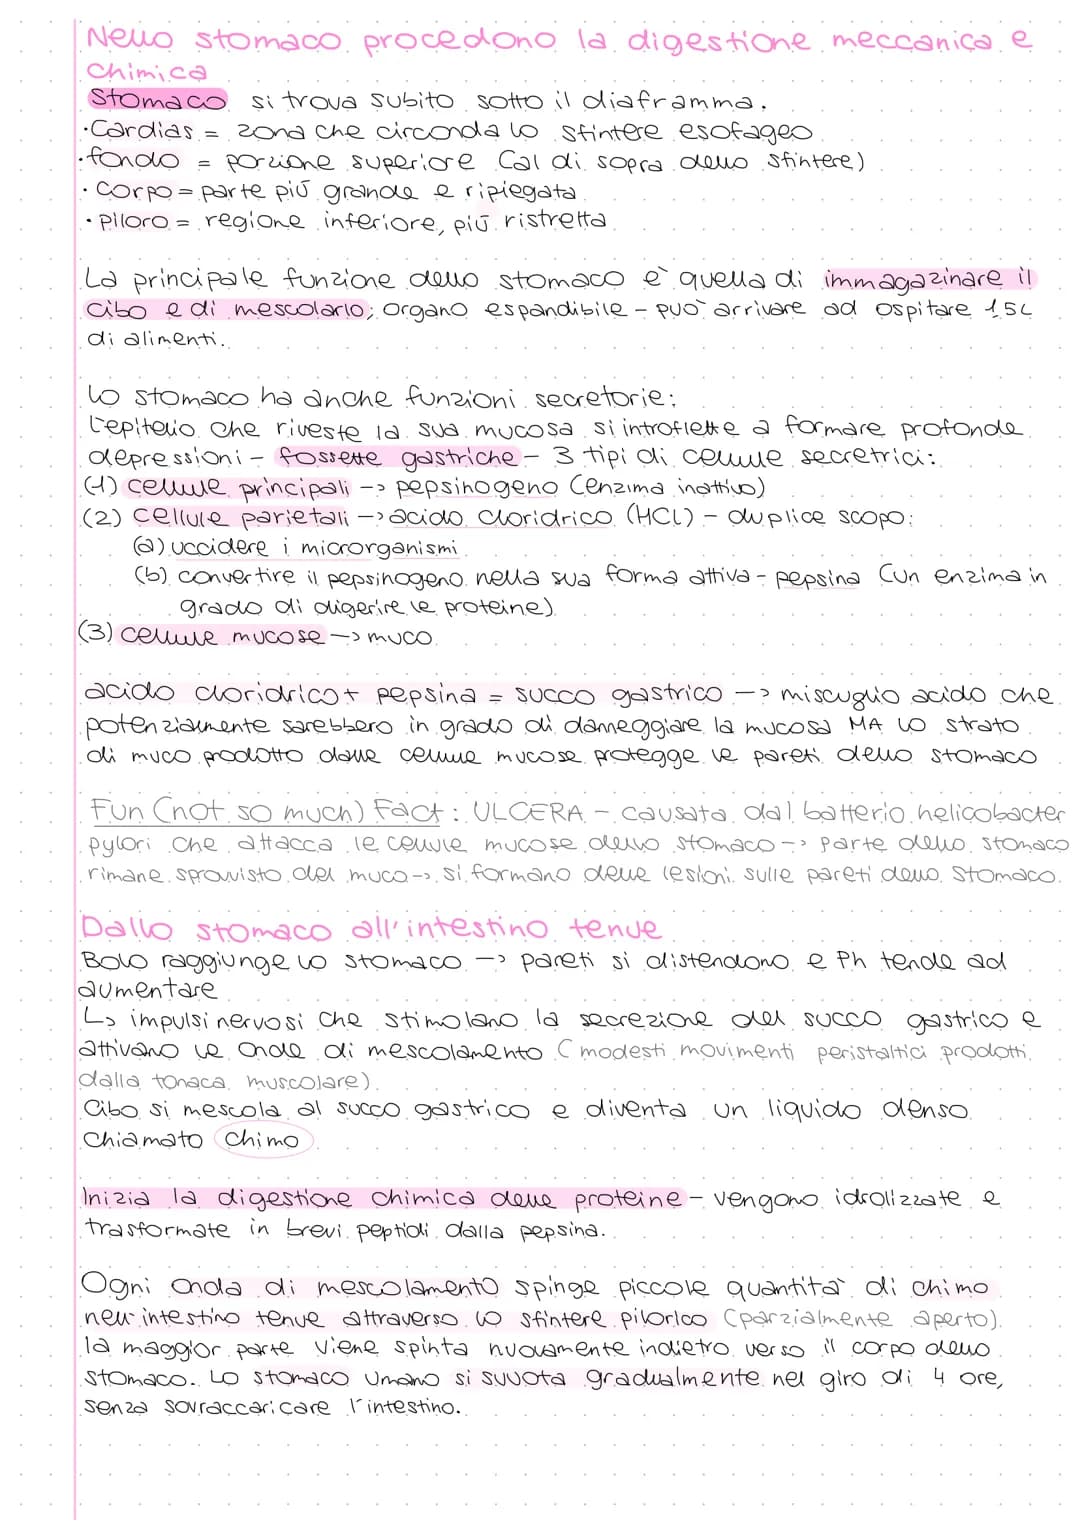 Nello stomaco procedono la digestione meccanica e
chimica
Stomaco si trova subito sotto il diaframma.
·Cardias = zona che circonda lo sfintere esofageo
·fondo = porzione superiore (al di sopra dello sfintere)
·corpo = parte più grande e ripiegata
·piloro = regione inferiore, più ristretta
La principale funzione dello stomaco è quella di immagazinare il
cibo e di mescolarlo; organo espandibile - può arrivare ad ospitare 1,5L
di alimenti.
Lo stomaco ha anche funzioni secretorie:
L'epitelio che riveste la sua mucosa si introflette a formare profonde
depressioni - fossette gastriche - 3 tipi di cellule secretrici:
(1) cellule principali -> pepsinogeno (enzima inattivo)
(2) cellule parietali -> acido cloridrico (HCL) - duplice scopo:
(a) uccidere i microrganismi
(b) convertire il pepsinogeno nella sua forma attiva - pepsina (un enzima in
grado di digerire le proteine)
(3) cellule mucose -> muco
acido cloridrico + pepsina = succo gastrico -> miscuglio acido che
potenzialmente sarebbero in grado di danneggiare la mucosa MA lo strato
di muco prodotto dalle cellule mucose protegge le pareti dello stomaco
Fun (not so much) Fact: ULCERA - causata dal batterio helicobacter
pylori che attacca le cellule mucose dello stomaco -> parte dello stomaco
rimane sprovvisto del muco -> si formano delle lesioni sulle pareti dello stomaco.
Dallo stomaco all'intestino tenue
Bolo raggiunge lo stomaco -> pareti si distendono e Ph tende ad
aumentare
↳ impulsi nervosi che stimolano la secrezione del succo gastrico e
attivano le onde di mescolamento (modesti movimenti peristaltici prodotti
dalla tonaca muscolare)
Cibo si mescola al succo gastrico e diventa un liquido denso
chiamato chimo
Inizia la digestione chimica delle proteine - vengono idrolizzate e
trasformate in brevi peptidi dalla pepsina.
Ogni onda di mescolamento spinge piccole quantità di chimo
nell'intestino tenue attraverso lo sfintere pilorico (parzialmente aperto).
la maggior parte viene spinta nuovamente indietro verso il corpo dello
stomaco. Lo stomaco umano si svuota gradualmente nel giro di 4 ore,
senza sovraccaricare l'intestino.